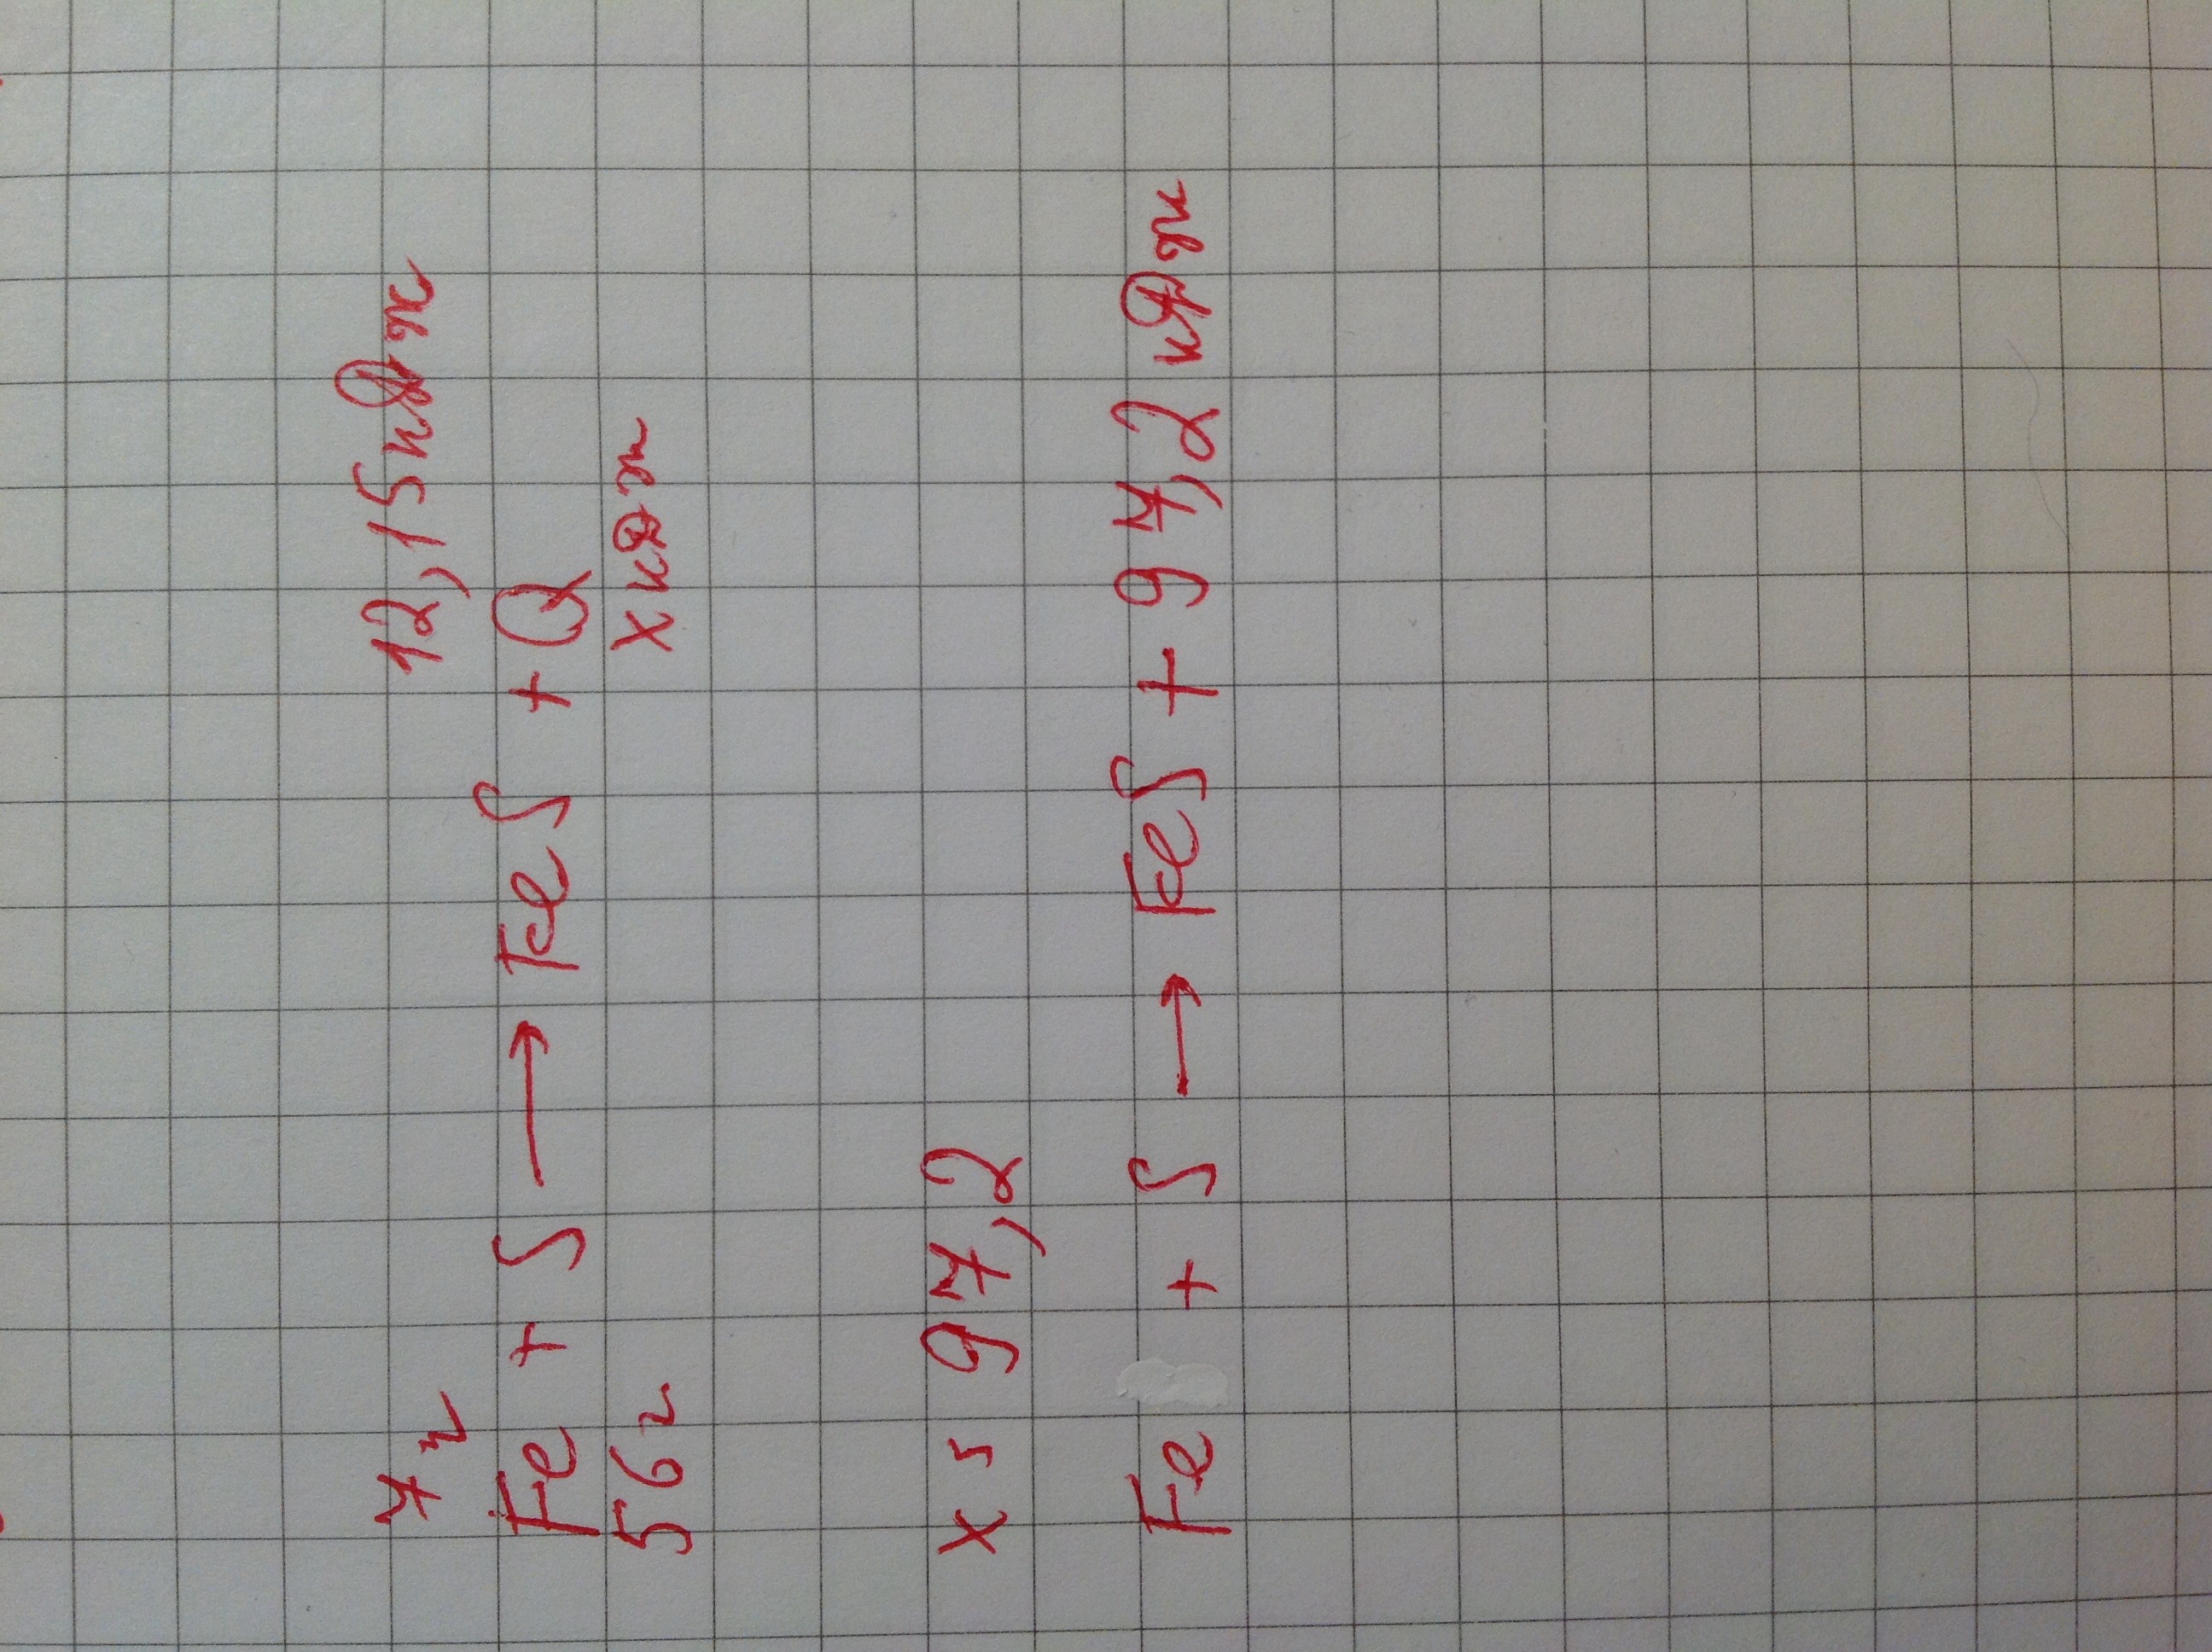 7г 12,15кДж
Fe + S → FeS + Q
56г х кДж
х = 97,2
Fe + S → FeS + 97,2 кДж